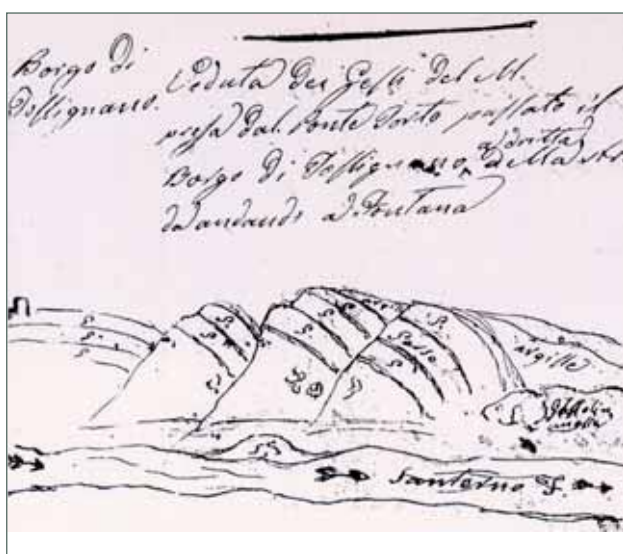 Borgo di
Tossignano.
Veduta dei Gessi del M.
presa dal Ponte Torto passato il
Borgo di Tossignano, a dritta della str
da andando a Fontana
G.
G.
G.
G.
G.
G.
G.
G.
Gesso
G.
Argille
Santerno F.